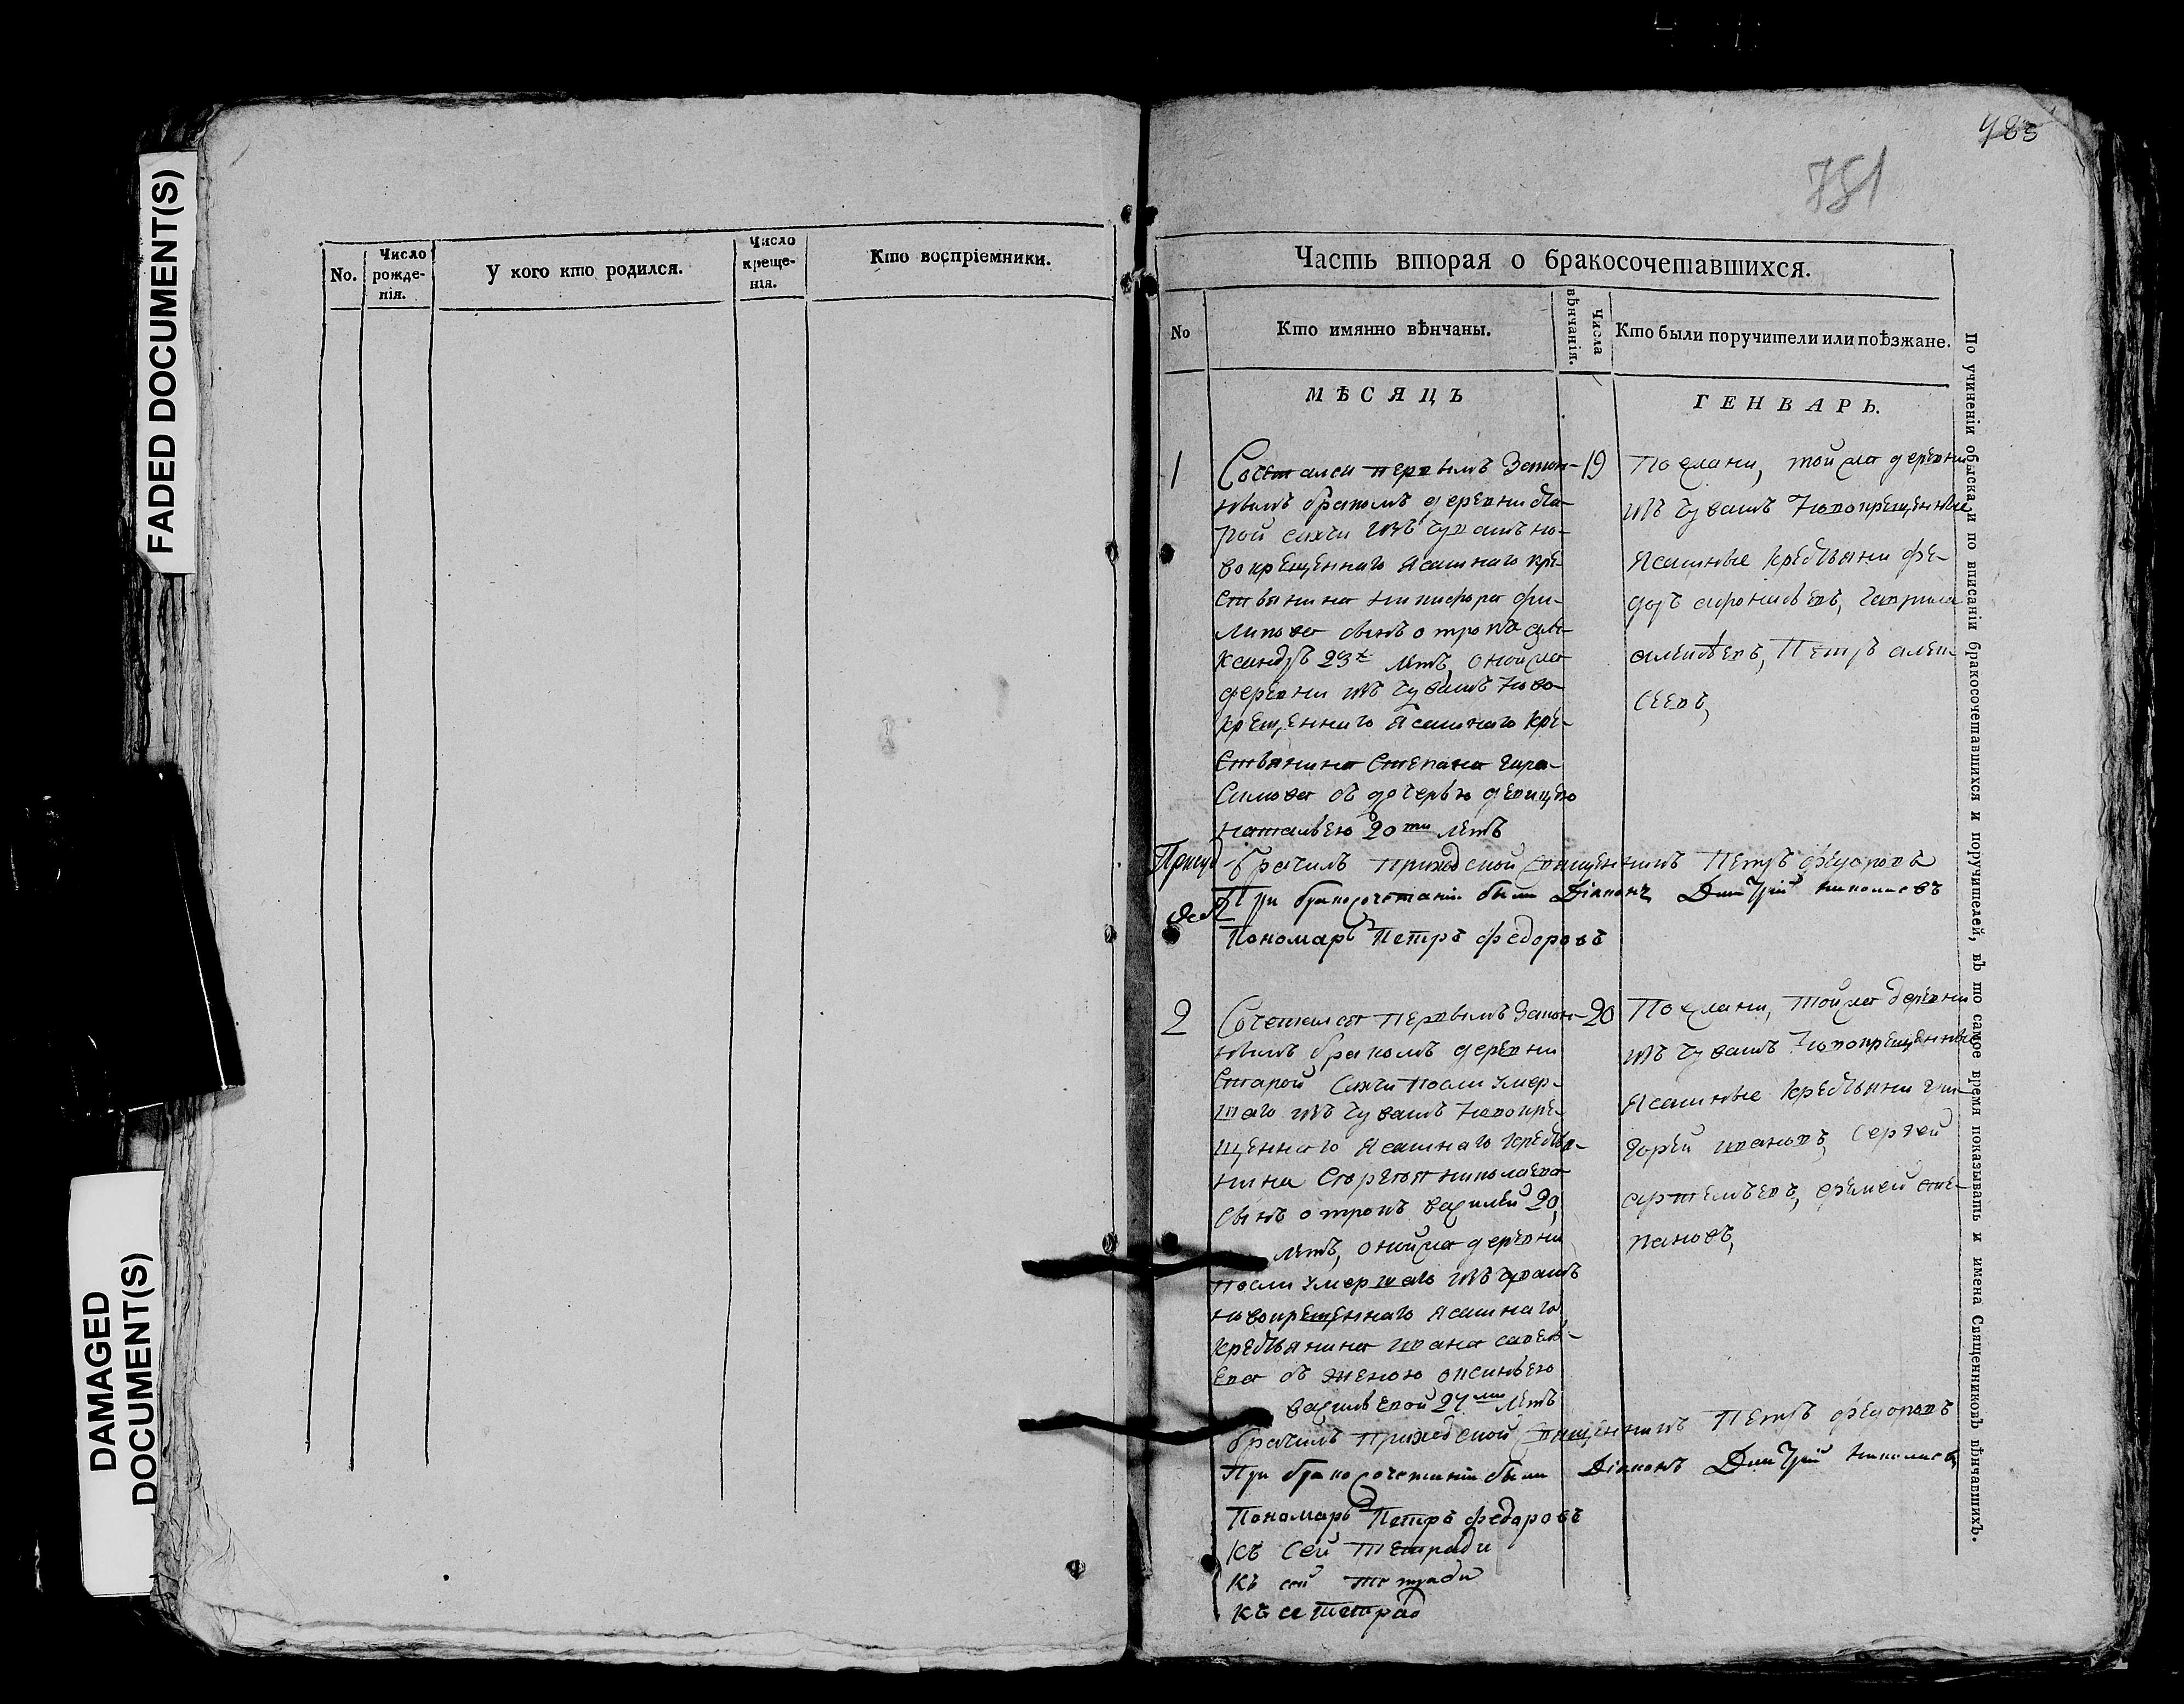 FADED DOCUMENT(S)
DAMAGED
DOCUMENT(S)
No.
Число
рожде-
нія.
У кого кто родился.
Число
креще-
нія.
Кто воспріемники.
483
781
Часть вторая о бракосочетавшихся.
No
Кто имянно вѣнчаны.
Числа
вѣнчанія.
Кто были поручители или поѣзжане.
МѢСЯЦЪ
ГЕНВАРЬ.
1
Сочетался первымъ Закон-
нымъ бракомъ деревни Ста-
рой сахчи изъ чувашъ но-
вокрещеннаго Ясашнаго кре-
стьянина никифора фи-
липова сынъ отрокъ але-
ксандръ 23х летъ, онойже
деревни изъ чувашъ ново-
крещеннаго Ясашнаго кре-
стьянина Степана гира-
симова съ дочерью девицею
натальею 20ти летъ
19
Поежани, тойже деревни
изъ чувашъ Новокрещенные
Ясашные крестьяни фе-
доръ афонасьевъ, гаврила
алексѣевъ, Петръ алек-
сеевъ,
брачилъ Приходской священникъ Петръ федоровъ
При бракосочетаніи были Діаконъ Димитрій николаевъ
Пономарь Петръ федоровъ
2
Сочетался первымъ Закон-
нымъ бракомъ деревни
Старой Сахчи посли умер-
шаго изъ чувашъ Новокре-
щеннаго Ясашнаго крестья-
нина николаева
сынъ отрокъ василей 20,
летъ, онойже деревни
посли умершаго изъ чувашъ
новокрещеннаго Ясашнаго
крестьянина ивана савель-
ева съ женою оксиньею
васильевой 27ми летъ
20
Поежани, тойже деревни
изъ чувашъ Новокрещенные
Ясашные крестьяни гри-
горей ивановъ, Сергей
артемьевъ, еремей сте-
пановъ,
брачилъ Приходской священникъ Петръ федоровъ
При бракосочетаніи были Діаконъ Димитрій николаевъ
Пономарь Петръ федоровъ
Къ Сей тетради
Къ сей тетради
Къ се тетрад
По учиненіи обыска, и по вписаніи бракосочетавшихся и поручителей, въ то самое время показывать и имена Священниковъ вѣнчавшихъ.